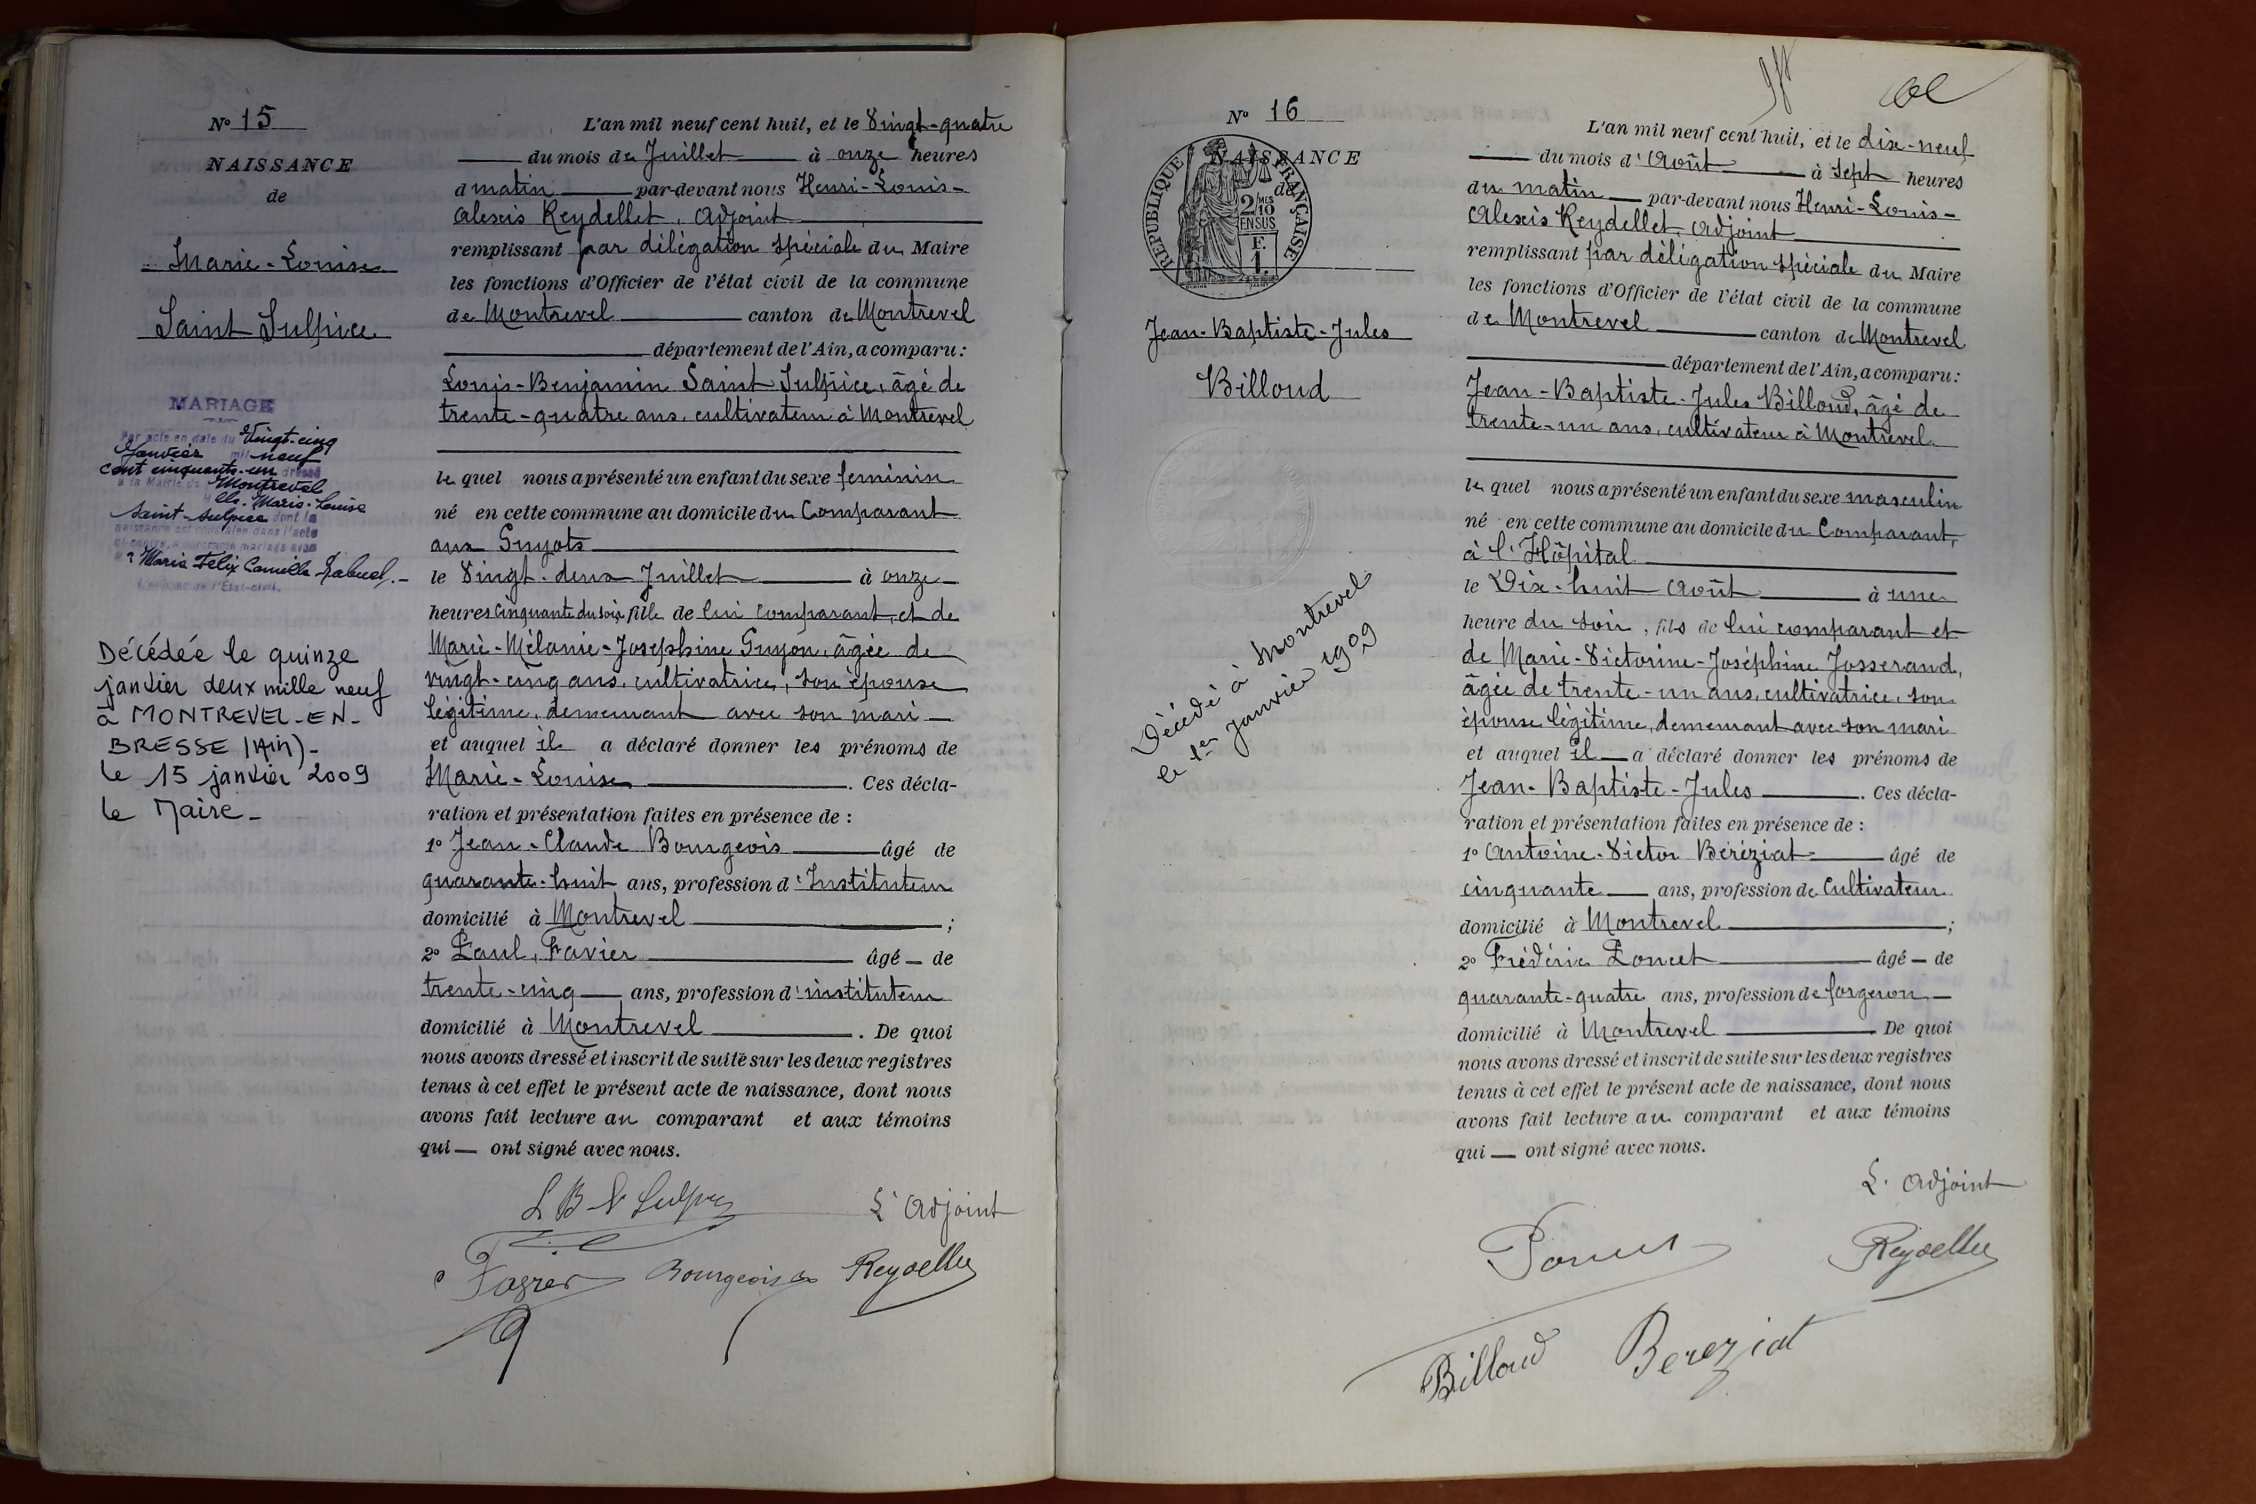 N° 15
NAISSANCE
de
Marie-Louise
Saint Sulpice
MARIAGE
Par acte en date du Vingt-cinq
Janvier mil neuf
cent cinquante-un dressé
à la Mairie de Montrevel
elle. Marie-Louise
Saint-Sulpice dont la
naissance est constatée dans l'acte
ci-contre, a contracté mariage avec
Marie Félix Camille Rabuel.-
L'officier de l'Etat-civil.
Décédée le quinze
janvier deux mille neuf
à MONTREVEL-EN-
BRESSE (Ain)-
le 15 janvier 2009
le Maire-
L'an mil neuf cent huit, et le Vingt-quatre
du mois de Juillet à onze heures
d matin par-devant nous Henri-Louis-
Alexis Reydellet, Adjoint
remplissant par délégation spéciale du Maire
les fonctions d'Officier de l'état civil de la commune
de Montrevel canton de Montrevel
département de l'Ain, a comparu:
Louis-Benjamin Saint Sulpice, âgé de
trente-quatre ans, cultivateur à Montrevel
lequel nous a présenté un enfant du sexe feminin
né en cette commune au domicile du Comparant
aux Guyots
le Vingt-deux Juillet à onze
heures cinquante du soir, fille de lui comparant, et de
Marie-Mélanie-Josephine Guyon, âgée de
vingt-cinq ans, cultivatrice, son épouse
légitime, demeurant avec son mari
et auquel il a déclaré donner les prénoms de
Marie-Louise . Ces décla-
ration et présentation faites en présence de :
1° Jean-Claude Bourgeois âgé de
quarante-huit ans, profession d'Instituteur
domicilié à Montrevel ;
2° Paul, Favier âgé de
trente-cinq ans, profession d'instituteur
domicilié à Montrevel . De quoi
nous avons dressé et inscrit de suite sur les deux registres
tenus à cet effet le présent acte de naissance, dont nous
avons fait lecture au comparant et aux témoins
qui ont signé avec nous.
L B St Sulpice
L'Adjoint
Bourgeois
Reydellet
N° 16
NAISSANCE
de
REPUBLIQUE FRANÇAISE
2/10 MES
EN SUS
F.
1.
Jean-Baptiste-Jules
Billoud
Décédé à Montrevel
le 1er Janvier 1909
L'an mil neuf cent huit, et le dix-neuf
du mois d'Août à sept heures
du matin par-devant nous Henri-Louis-
Alexis Reydellet, Adjoint
remplissant par délégation spéciale du Maire
les fonctions d'Officier de l'état civil de la commune
de Montrevel canton de Montrevel
département de l'Ain, a comparu:
Jean-Baptiste-Jules Billoud, âgé de
trente-un ans, cultivateur à Montrevel
lequel nous a présenté un enfant du sexe masculin
né en cette commune au domicile du Comparant,
à l'Hôpital
le Dix-huit Août à une
heure du soir, fils de lui comparant et
de Marie-Victorine-Joséphine Josserand,
âgée de trente-un ans, cultivatrice, son
épouse légitime, demeurant avec son mari
et auquel il a déclaré donner les prénoms de
Jean-Baptiste-Jules . Ces décla-
ration et présentation faites en présence de :
1° Antoine-Victor Béréziat âgé de
cinquante ans, profession de Cultivateur
domicilié à Montrevel ;
2° Frédéric Poncet âgé de
quarante-quatre ans, profession de forgeron
domicilié à Montrevel De quoi
nous avons dressé et inscrit de suite sur les deux registres
tenus à cet effet le présent acte de naissance, dont nous
avons fait lecture au comparant et aux témoins
qui ont signé avec nous.
L'Adjoint
Poncet
Reydellet
Billoud
Bereziat